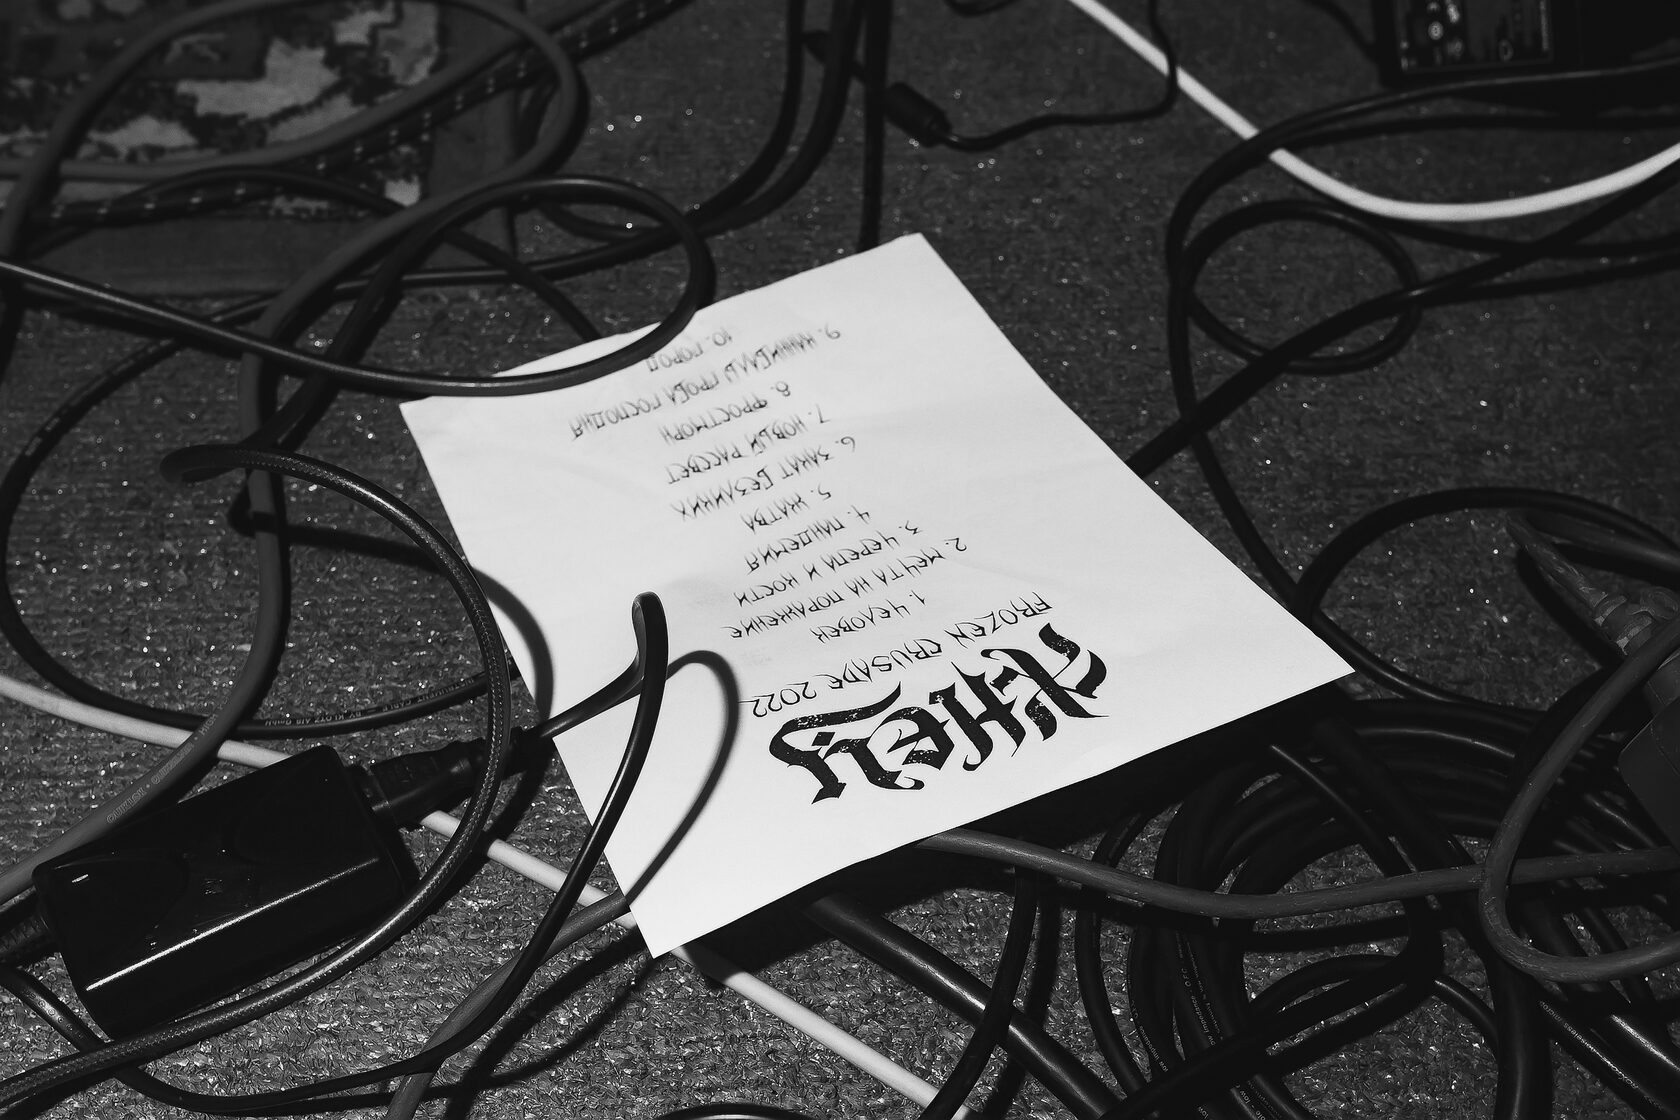 Иней
FROZEN CRUSADE 2022
1. ЧЕЛОВЕК
2. МЕЧТА НА ПОРАЖЕНИЕ
3. ЧЕРЕПА И КОСТИ
4. ПАНДЕМИЯ
5. ЖАТВА
6. ЗАКАТ БЕЗЛИКИХ
7. НОВЫЙ РАССВЕТ
8. ФРОСТМОРН
9. КАННИБАЛЫ ГРОБА ГОСПОДНЯ
10. ГОРОД